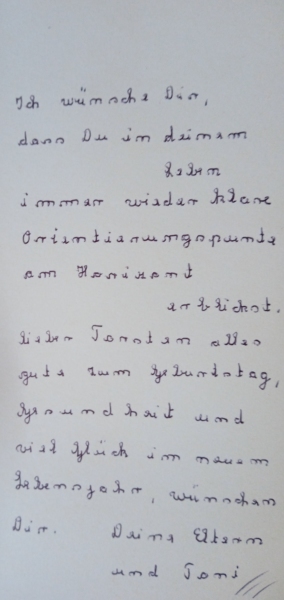 Ich wünsche Dir,
dass Du in deinem
Leben
immer wieder klare
Orientierungspunkte
am Horizont
erblickst.
Lieber Torsten alles
gute zum Geburtstag,
Gesundheit und
viel Glück im neuem
Lebensjahr, wünschen
Dir. Deine Eltern
und Toni